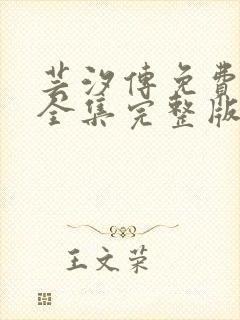 芸汐傳免費
全集完整版
王文荣